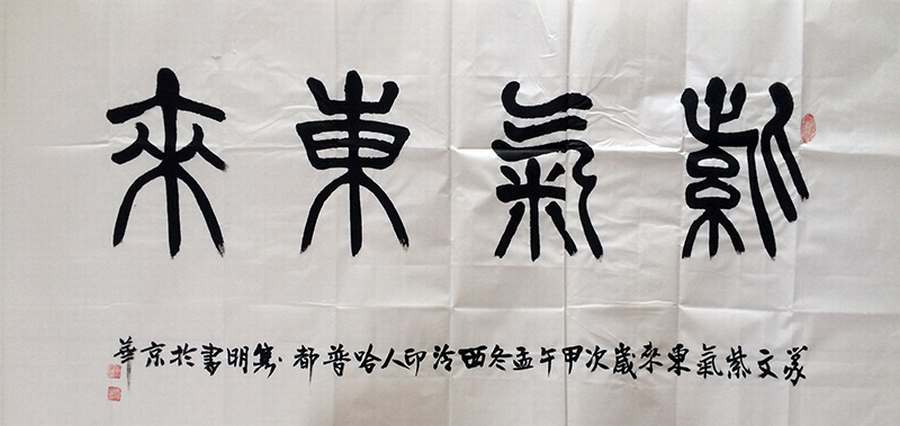 紫氣東來
篆文紫氣東來歲次甲午孟冬西泠印人哈普都·隽明書於京華